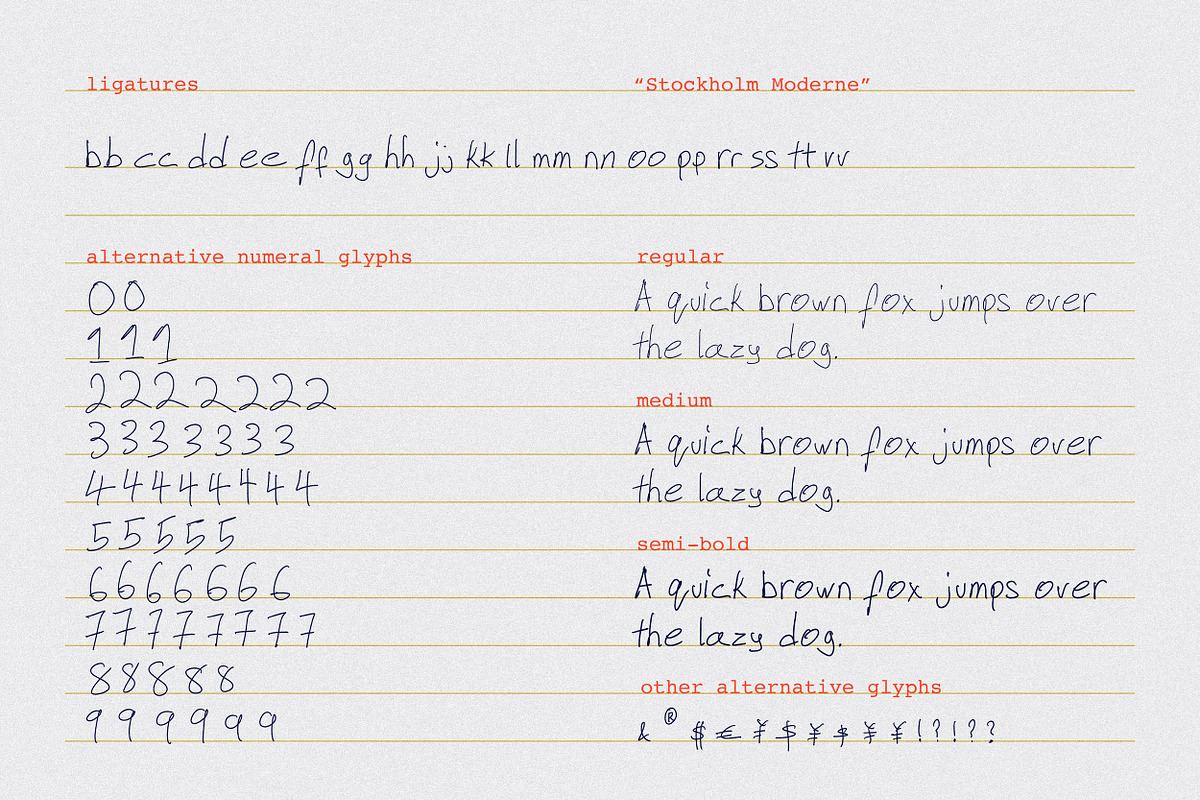 ligatures
“Stockholm Moderne”
bb cc dd ee ff gg hh jj kk ll mm nn oo pp rr ss tt vv
alternative numeral glyphs
00
111
2222222
3333333
44444444
55555
6666666
77777777
88888
999999
regular
A quick brown fox jumps over
the lazy dog.
medium
A quick brown fox jumps over
the lazy dog.
semi-bold
A quick brown fox jumps over
the lazy dog.
other alternative glyphs
& ® $ € ¥ $ ¥ $ ¥ ¥ ! ? ! ? ?